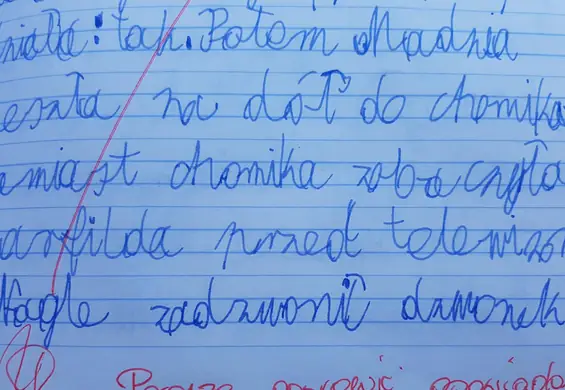 niała: tak. Potem Madzia
eszła na dół do chomika
miast chomika zobaczyła
arfilda przed telewizo
Nagle zadzwonił dzwonek
Proszę poprawić